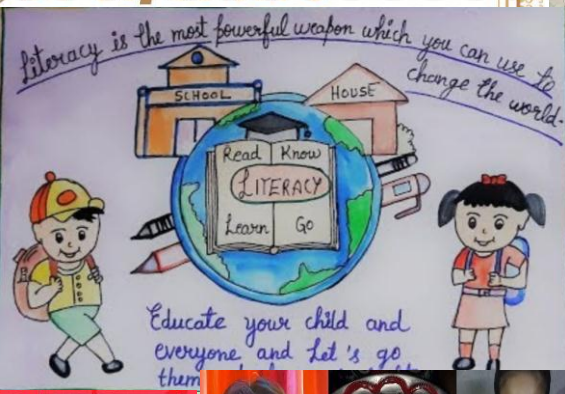 Literacy is the most powerful weapon which you can use to
change the world.
SCHOOL
HOUSE
Read Know
LITERACY
Learn Go
Educate your child and
everyone and Let's go
them